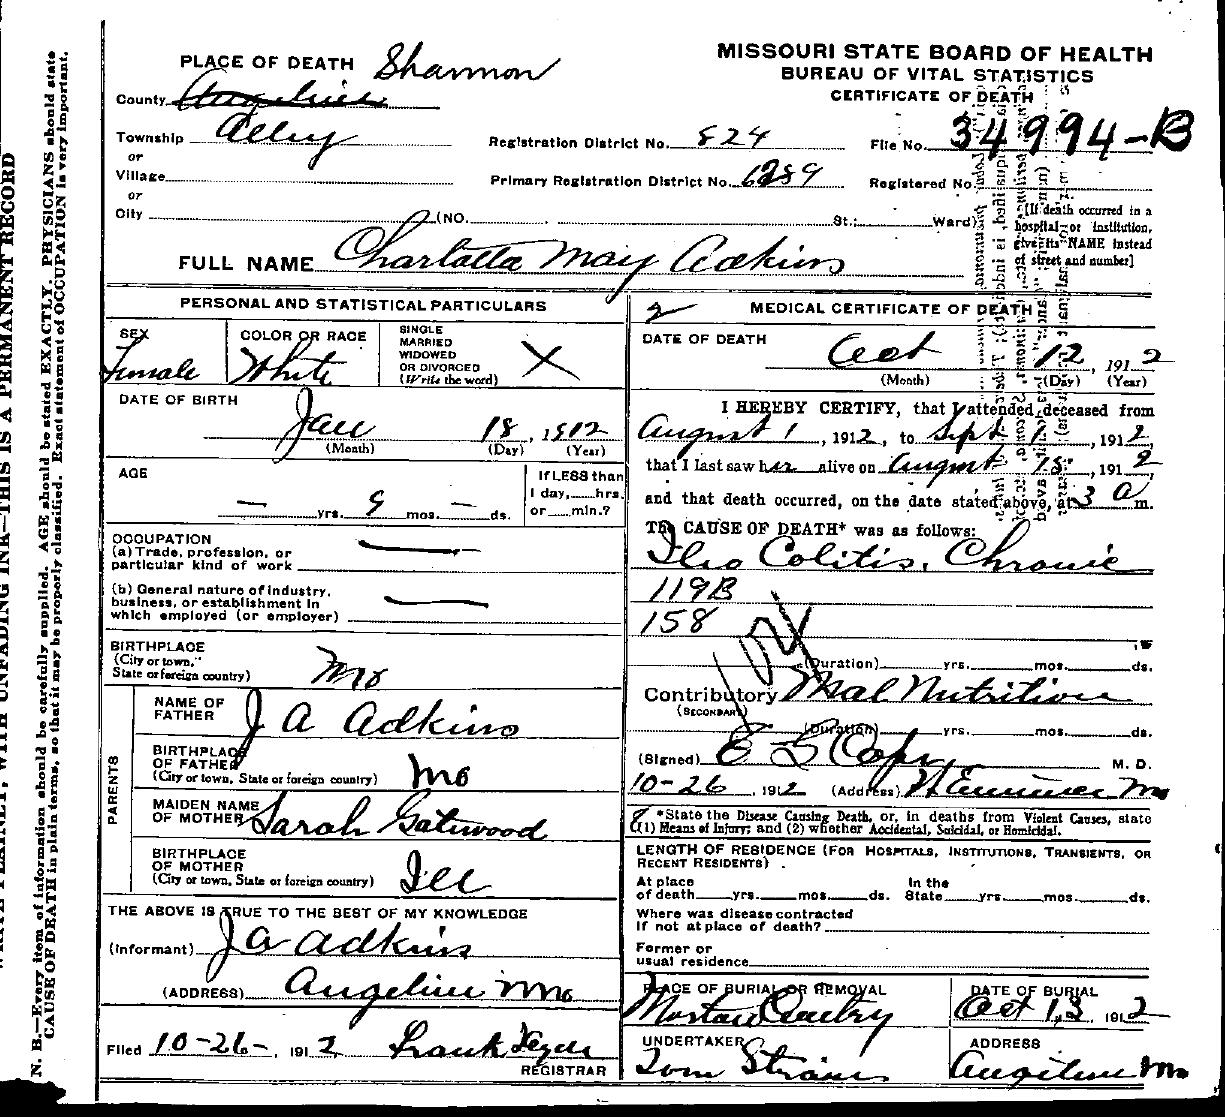 MISSOURI STATE BOARD OF HEALTH
BUREAU OF VITAL STATISTICS
CERTIFICATE OF DEATH
PLACE OF DEATH Shannon
County Angeline
Township
or
Village
or
City
Registration District No. 824
File No. 34994-B
Primary Registration District No. 6289
Registered No.
(NO. St.; Ward)
[If death occurred in a
hospital or institution,
give its NAME instead
of street and number]
FULL NAME Charlatta May Adkins
PERSONAL AND STATISTICAL PARTICULARS
SEX
Female
COLOR OR RACE
White
SINGLE
MARRIED
WIDOWED
OR DIVORCED
(Write the word)
X
DATE OF BIRTH
Jan 18, 1912
(Month) (Day) (Year)
AGE
— yrs. 9 mos. — ds.
If LESS than
1 day, hrs.
or min.?
OCCUPATION
(a) Trade, profession, or
particular kind of work
(b) General nature of industry,
business, or establishment in
which employed (or employer)
BIRTHPLACE
(City or town,
State or foreign country)
Mo
PARENTS
NAME OF
FATHER
J A Adkins
BIRTHPLACE
OF FATHER
(City or town, State or foreign country)
Mo
MAIDEN NAME
OF MOTHER
Sarah Gatewood
BIRTHPLACE
OF MOTHER
(City or town, State or foreign country)
Ill
THE ABOVE IS TRUE TO THE BEST OF MY KNOWLEDGE
(Informant) J A Adkins
(ADDRESS) Angeline Mo
Filed 10-26-, 1912 Frank
REGISTRAR
2 MEDICAL CERTIFICATE OF DEATH
DATE OF DEATH
Oct 12, 1912
(Month) (Day) (Year)
I HEREBY CERTIFY, that I attended deceased from
August 1, 1912, to Sept 1, 1912,
that I last saw her alive on August 18, 1912
and that death occurred, on the date stated above, at 3 a m.
The CAUSE OF DEATH* was as follows:
Ileo Colitis, Chronic
119B
158
104
(Duration) yrs. mos. ds.
Contributory Mal Nutrition
(SECONDARY)
(Duration) yrs. mos. ds.
(Signed) E S M. D.
10-26, 1912 (Address) Mo
*State the Disease Causing Death, or, in deaths from Violent Causes, state
(1) Means of Injury; and (2) whether Accidental, Suicidal, or Homicidal.
LENGTH OF RESIDENCE (FOR HOSPITALS, INSTITUTIONS, TRANSIENTS, OR
RECENT RESIDENTS)
At place
of death yrs. mos. ds.
In the
State yrs. mos. ds.
Where was disease contracted
If not at place of death?
Former or
usual residence
PLACE OF BURIAL OR REMOVAL
DATE OF BURIAL
Oct 13, 1912
UNDERTAKER
Tom
ADDRESS
Angeline Mo
N. B.—Every item of information should be carefully supplied. AGE should be stated EXACTLY. PHYSICIANS should state
CAUSE OF DEATH in plain terms, so that it may be properly classified. Exact statement of OCCUPATION is very important.
WRITE PLAINLY, WITH UNFADING INK—THIS IS A PERMANENT RECORD